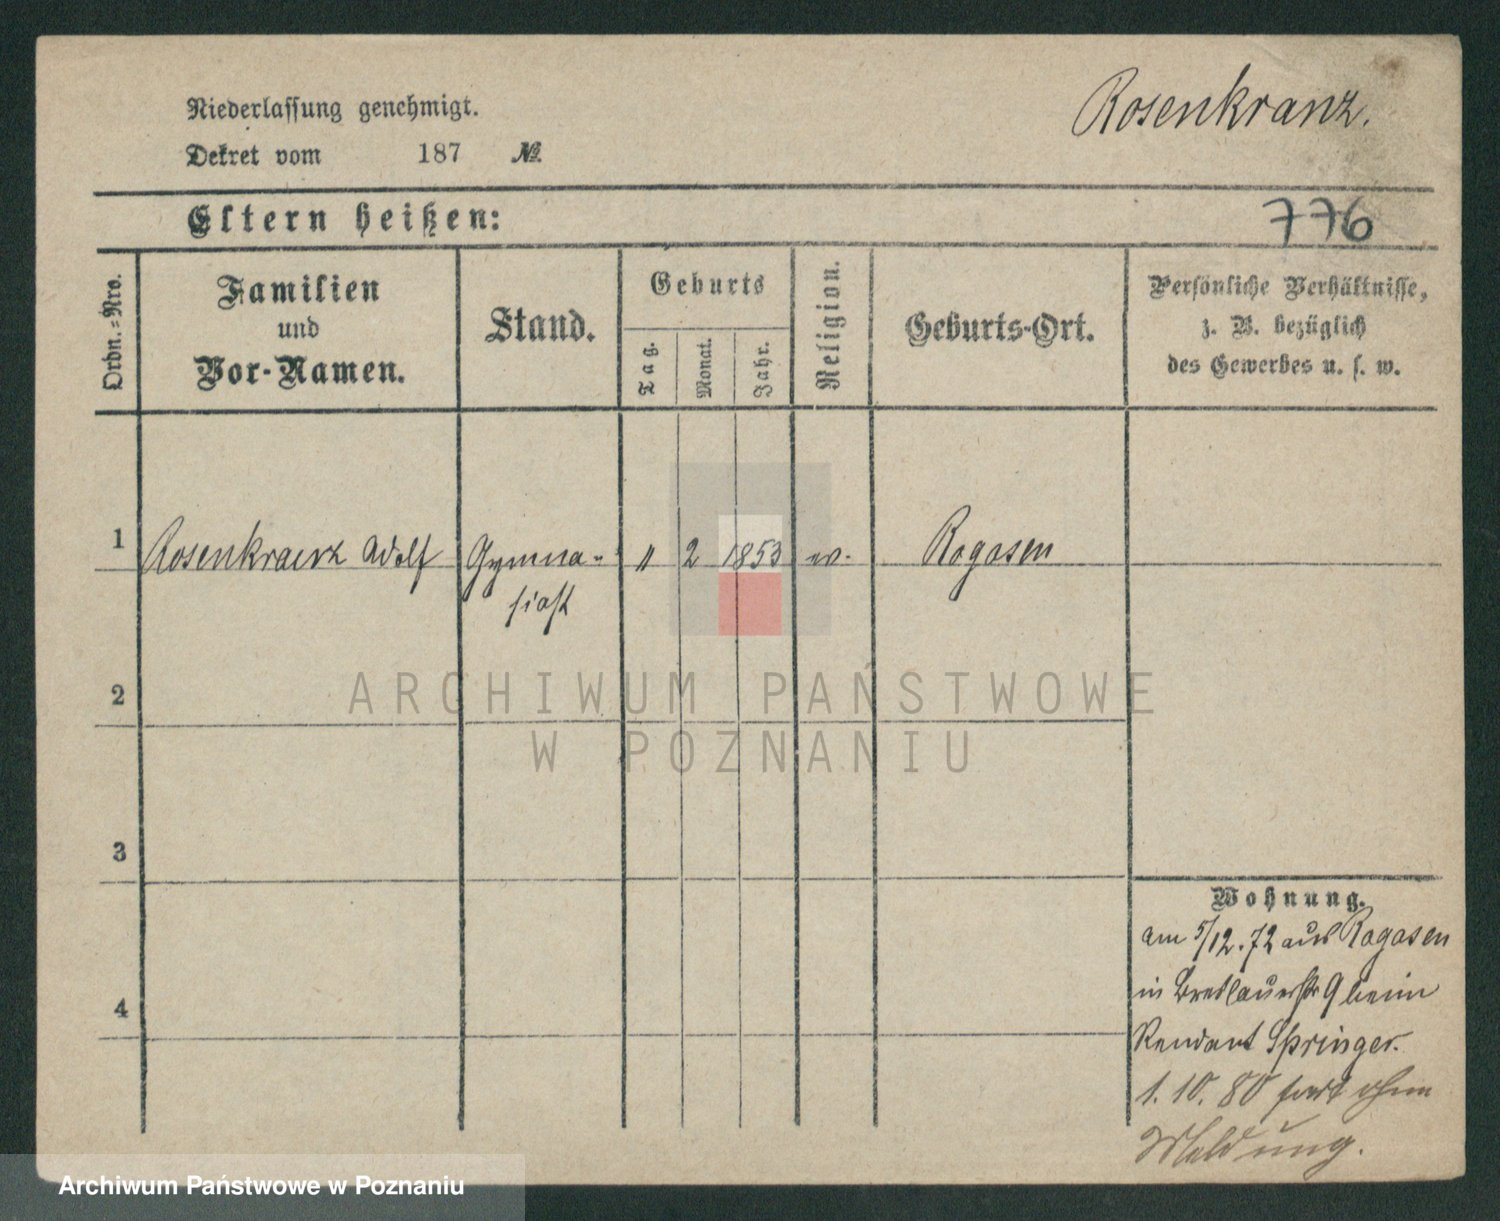 Rosenkranz.
Niederlassung genehmigt.
Dekret vom 187 №
Eltern heißen:
776
Ordn.-Nro.
Familien
und
Vor-Namen.
Stand.
Geburts
Tag.
Monat.
Jahr.
Religion.
Geburts-Ort.
Persönliche Verhältnisse,
z. B. bezüglich
des Gewerbes u. s. w.
1 Rosenkranz Adolf Gymna- 〃 2 1853 Rogasen
siast
2
3
4
Wohnung.
am 5/12.72 aus Rogasen
in Breslauerstr 9 beim
Rendant Springer.
1.10.80 fort ohne
Meldung.
ARCHIWUM PAŃSTWOWE
W POZNANIU
Archiwum Państwowe w Poznaniu